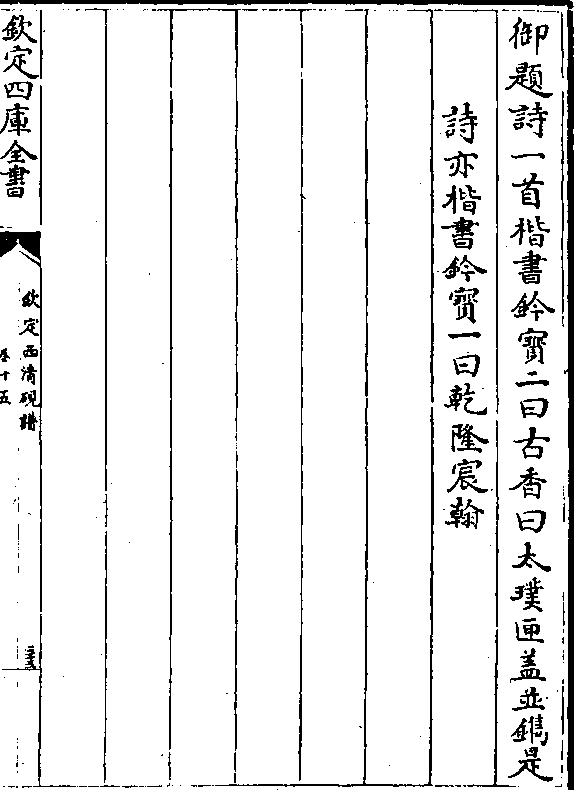 御題詩一首楷書鈐寶二曰古香曰太璞匣蓋並鐫是
詩亦楷書鈐寶一曰乾隆宸翰
欽定四庫全書
欽定西清硯譜
卷十五